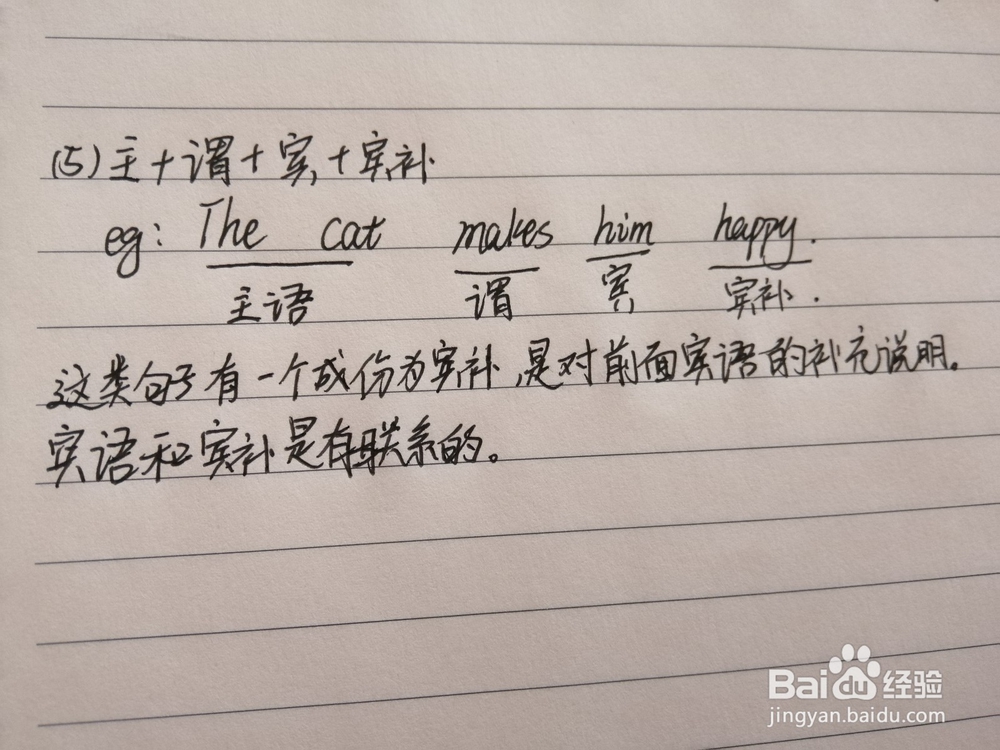 (5)主+谓+宾+宾补
eg: The cat makes him happy.
主语 谓 宾 宾补.
这类句子有一个成份为宾补,是对前面宾语的补充说明。
宾语和宾补是有联系的。
Baidu经验
jingyan.baidu.com